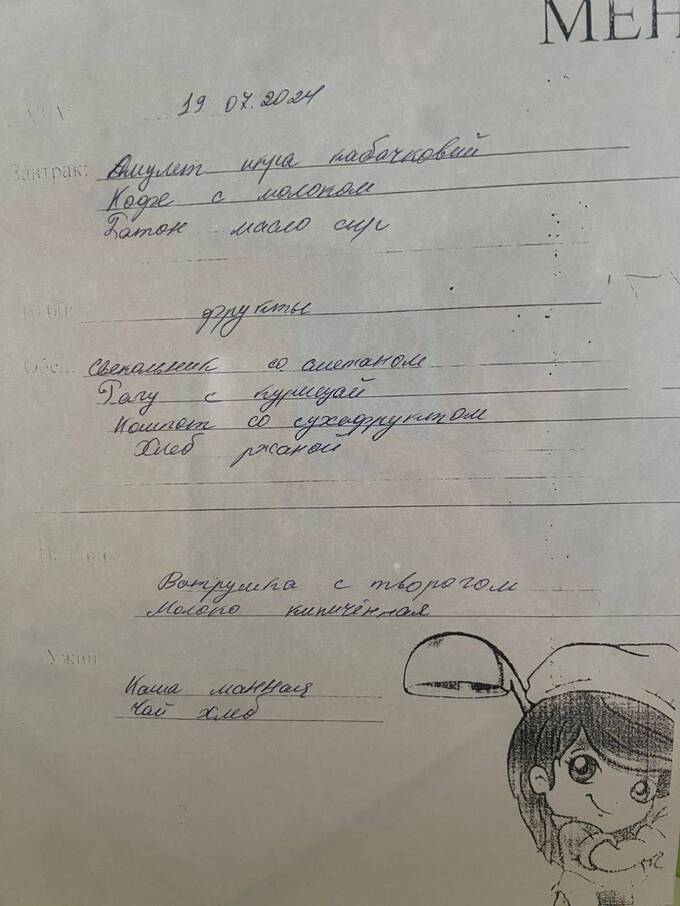 МЕН
ДАТА 19 07.2024
Завтрак: Омулет икра кабачковий
Кофе с молоком
Батон масло сыр
10 00: фрукты
Обед свекольник со сметаном
Рагу с курицай
Компот со сухофруктом
Хлеб ржаной
Ватрушка с творагом
Молоко кипичённая
Ужин
Каша манная
Чай хлеб